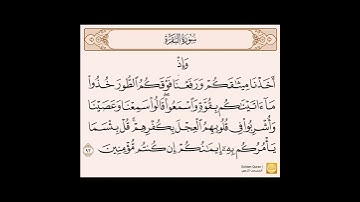 سُورَةُ البَقَرَةِ
وَإِذْ
أَخَذْنَا مِيثَٰقَكُمْ وَرَفَعْنَا فَوْقَكُمُ ٱلطُّورَ خُذُوا۟
مَآ ءَاتَيْنَٰكُم بِقُوَّةٍ وَٱسْمَعُوا۟ ۖ قَالُوا۟ سَمِعْنَا وَعَصَيْنَا
وَأُشْرِبُوا۟ فِى قُلُوبِهِمُ ٱلْعِجْلَ بِكُفْرِهِمْ ۚ قُلْ بِئْسَمَا
يَأْمُرُكُم بِهِۦٓ إِيمَٰنُكُمْ إِن كُنتُم مُّؤْمِنِينَ ٩٣
Golden Quran |